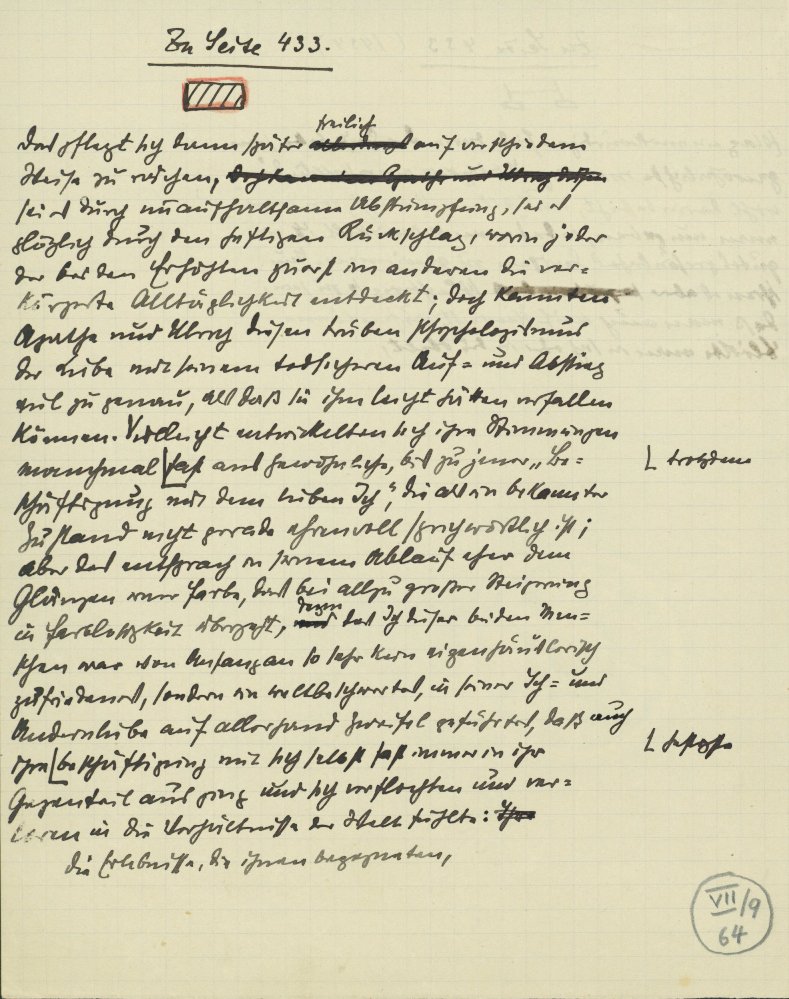 Zu Seite 433.
freilich
Das pflegt sich dann später allerdings auf verschiedene
Weise zu rächen,
sei es durch unaufhaltsame Abstumpfung, sei es
plötzlich durch den heftigen Rückschlag, worin jeder
der beiden Erhöhten zuerst im anderen die ver-
körperte Alltäglichkeit entdeckt; doch kannten
Agathe und Ulrich diesen trüben Psychologismus
der Liebe mit seinem todsicheren Auf- und Abstieg
viel zu genau, als daß sie ihm leicht hätten verfallen
können. Vielleicht entwickelten sich ihre Stimmungen
manchmal fast ans Gewöhnliche, bis zu jener „Be-
└ trotzdem
schäftigung mit dem lieben Ich", die als ein bekannter
Zustand nicht gerade ehrenvoll sprichwörtlich ist;
aber das entsprach in seinem Ablauf eher dem
Glänzen einer Farbe, das bei allzu großer Steigerung
in Farblosigkeit übergeht,
denn
und das Ich dieser beiden Men-
schen war von Anfang an so sehr kein eigenhäuslerisch
zufriedenes, sondern ein weltbeschwertes, in seiner Ich- und
Andernliebe auf allerhand Zweifel geführtes, daß auch
ihre Beschäftigung mit sich selbst fast immer in ihr
Gegenteil ausging und sich verflochten und ver-
loren in die Verhältnisse der Welt fühlte: Ihre
die Erlebnisse, die ihnen begegneten,
VII/9
64